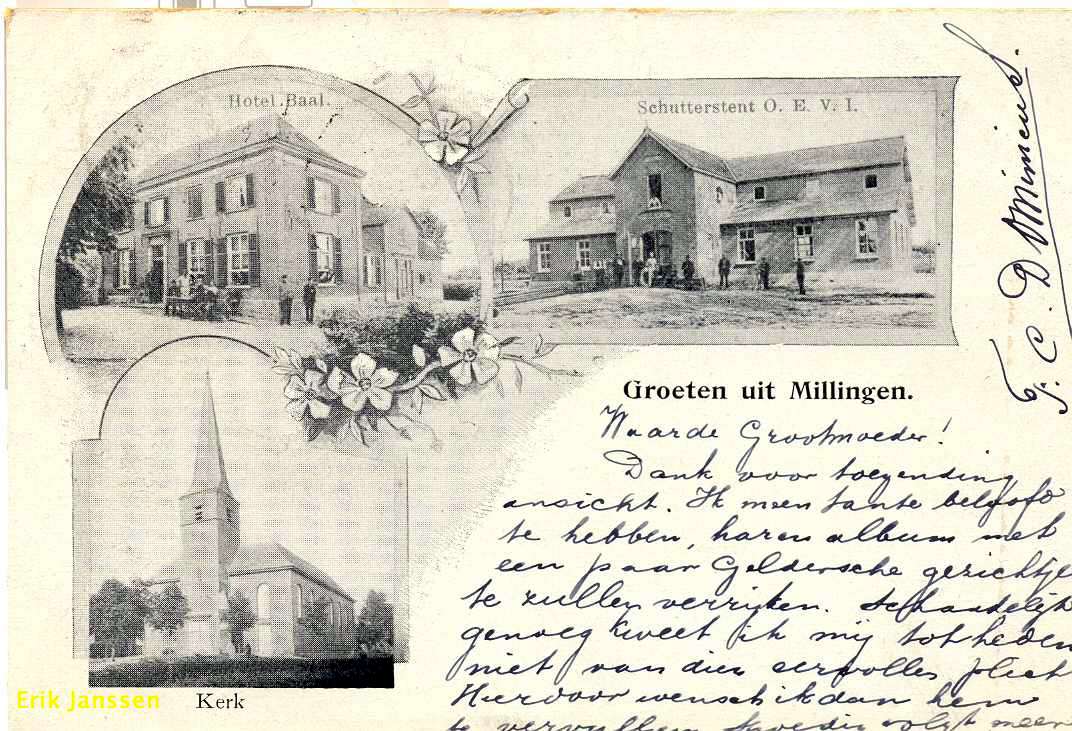 Hotel Baal.
Schutterstent O. E. V. I.
Groeten uit Millingen.
Waarde Grootmoeder!
Dank voor toezending
ansicht. Ik meen tante beloofd
te hebben, haren album met
een paar Geldersche gezichtje
te zullen verrijken. Schandelijk
genoeg kweet ik mij tot heden
niet van dien eervollen plicht
Hiervoor wensch ik dan hem
te vervullen. Spoedig volgt meer
Kerk
Erik Janssen
F. C. D.